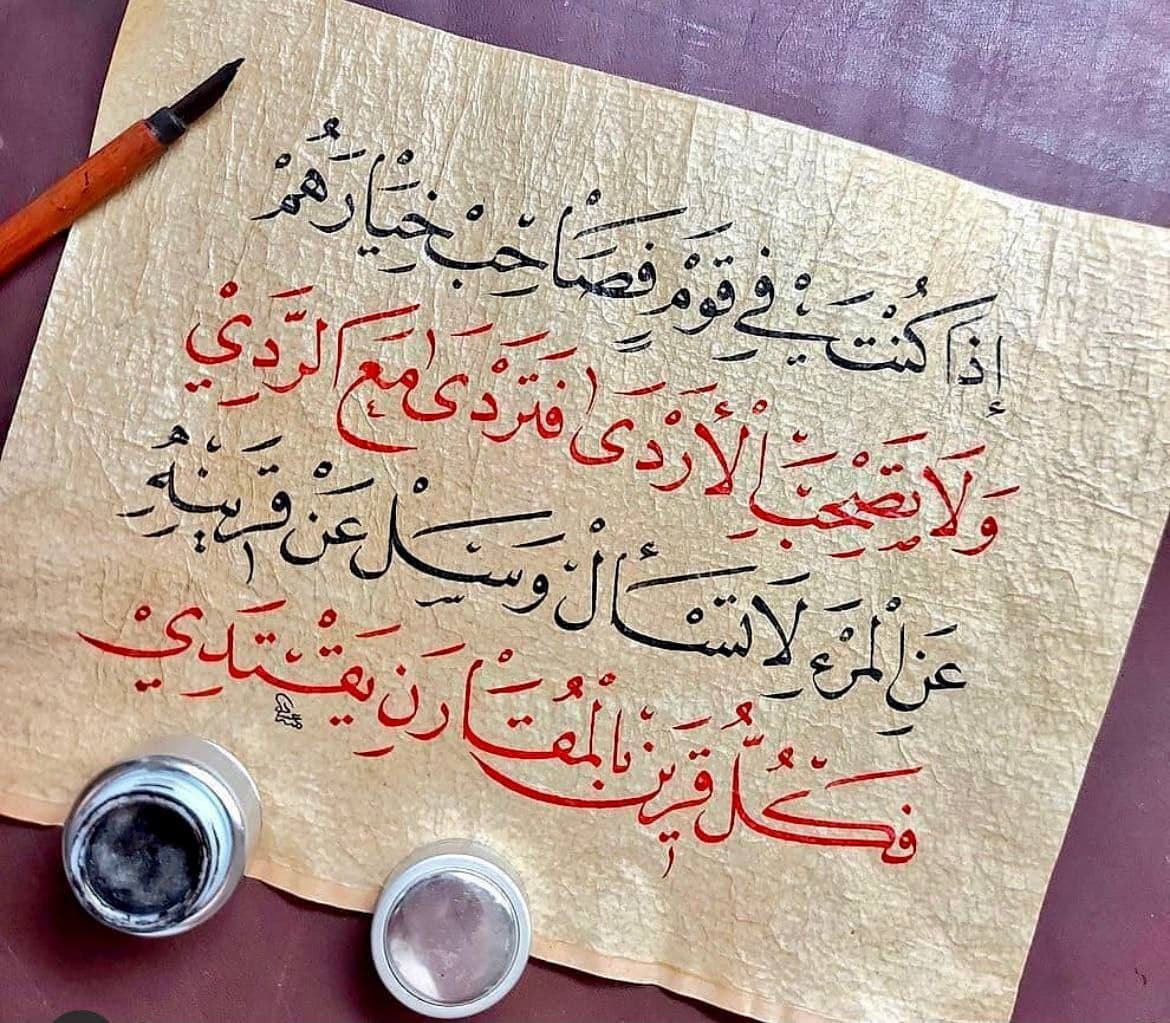 إِذَا كُنْتَ فِي قَوْمٍ فَصَاحِبْ خِيَارَهُمْ
وَلَا تَصْحَبِ الْأَرْدَى فَتَرْدَى مَعَ الرَّدِيْ
عَنِ الْمَرْءِ لَا تَسْأَلْ وَسَلْ عَنْ قَرِيْنِهِ
فَكُلُّ قَرِيْنٍ بِالْمُقَارَنِ يَقْتَدِيْ